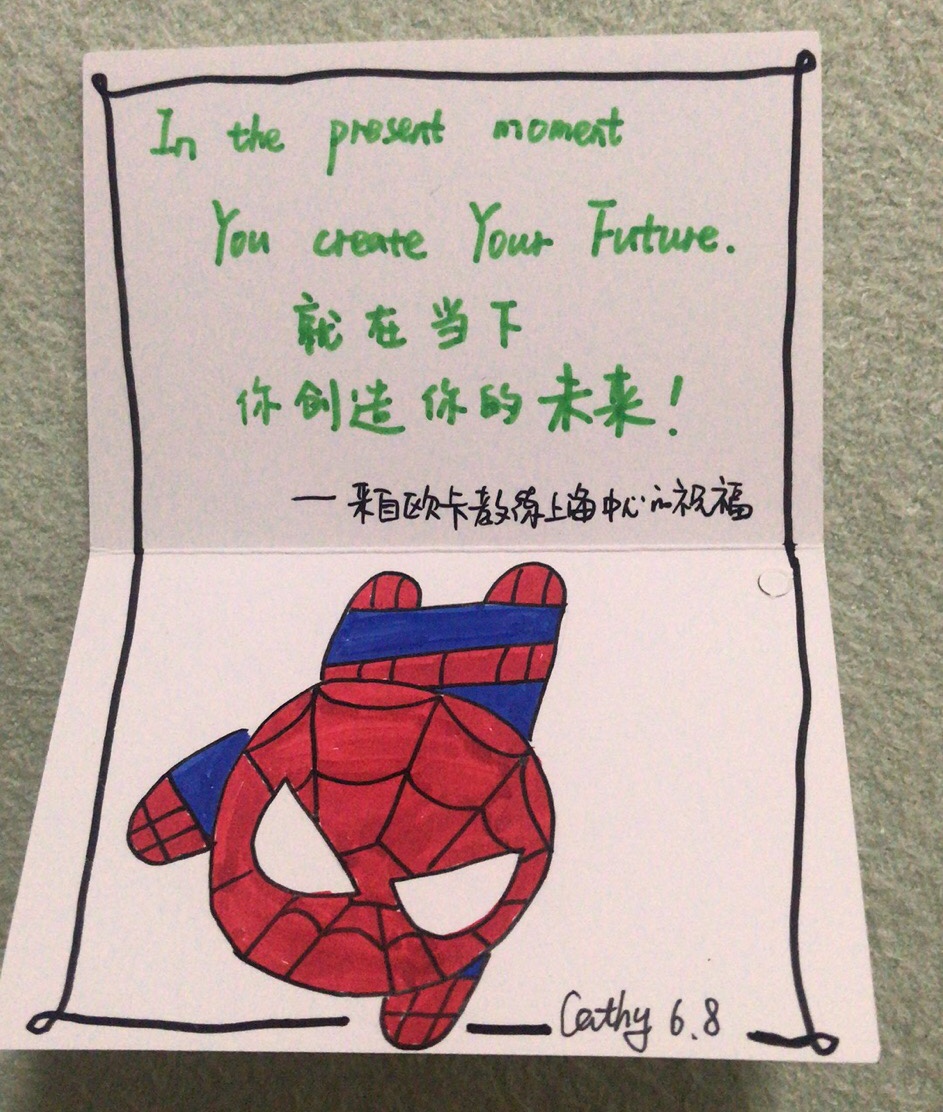 In the present moment
You create Your Future.
就在当下
你创造你的未来!
— 来自欧卡教练上海中心的祝福
Cathy 6.8